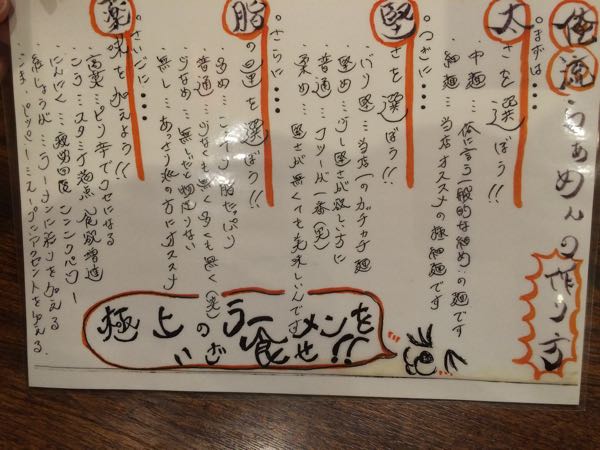 俺流らぁめんの作り方
○まずは…
太さを選ぼう!!
・中麺…俗に言う一般的な細め。の麺です
・細麺…当店オススメの極細麺です
○つぎに…
堅さを選ぼう!!
・バリ堅…当店一のガチガチ麺
・堅め…少し堅さが欲しい方に
・普通…コツーが一番(笑)
・柔め…堅さが無くても美味しいんです
○さらに…
脂の量を選ぼう!!
・多め…こってり脂たっぷり
・普通…少なくも無く多くも無く(笑)
・少なめ…無しだと物足りない
・無し…あっさり派の方にオススメ
○さいごに…
薬味を加えよう!!
・高菜…ピリ辛でクセになる
・こう…スタミナ満点食欲増進
・にんにく…疲労回復ニンニクパワー
・紅しょうが…ラーメンに彩りを加える
・ごま…ピッピーとスープにアクセントを加える。
極上のラーメンを
いざ食せ!!